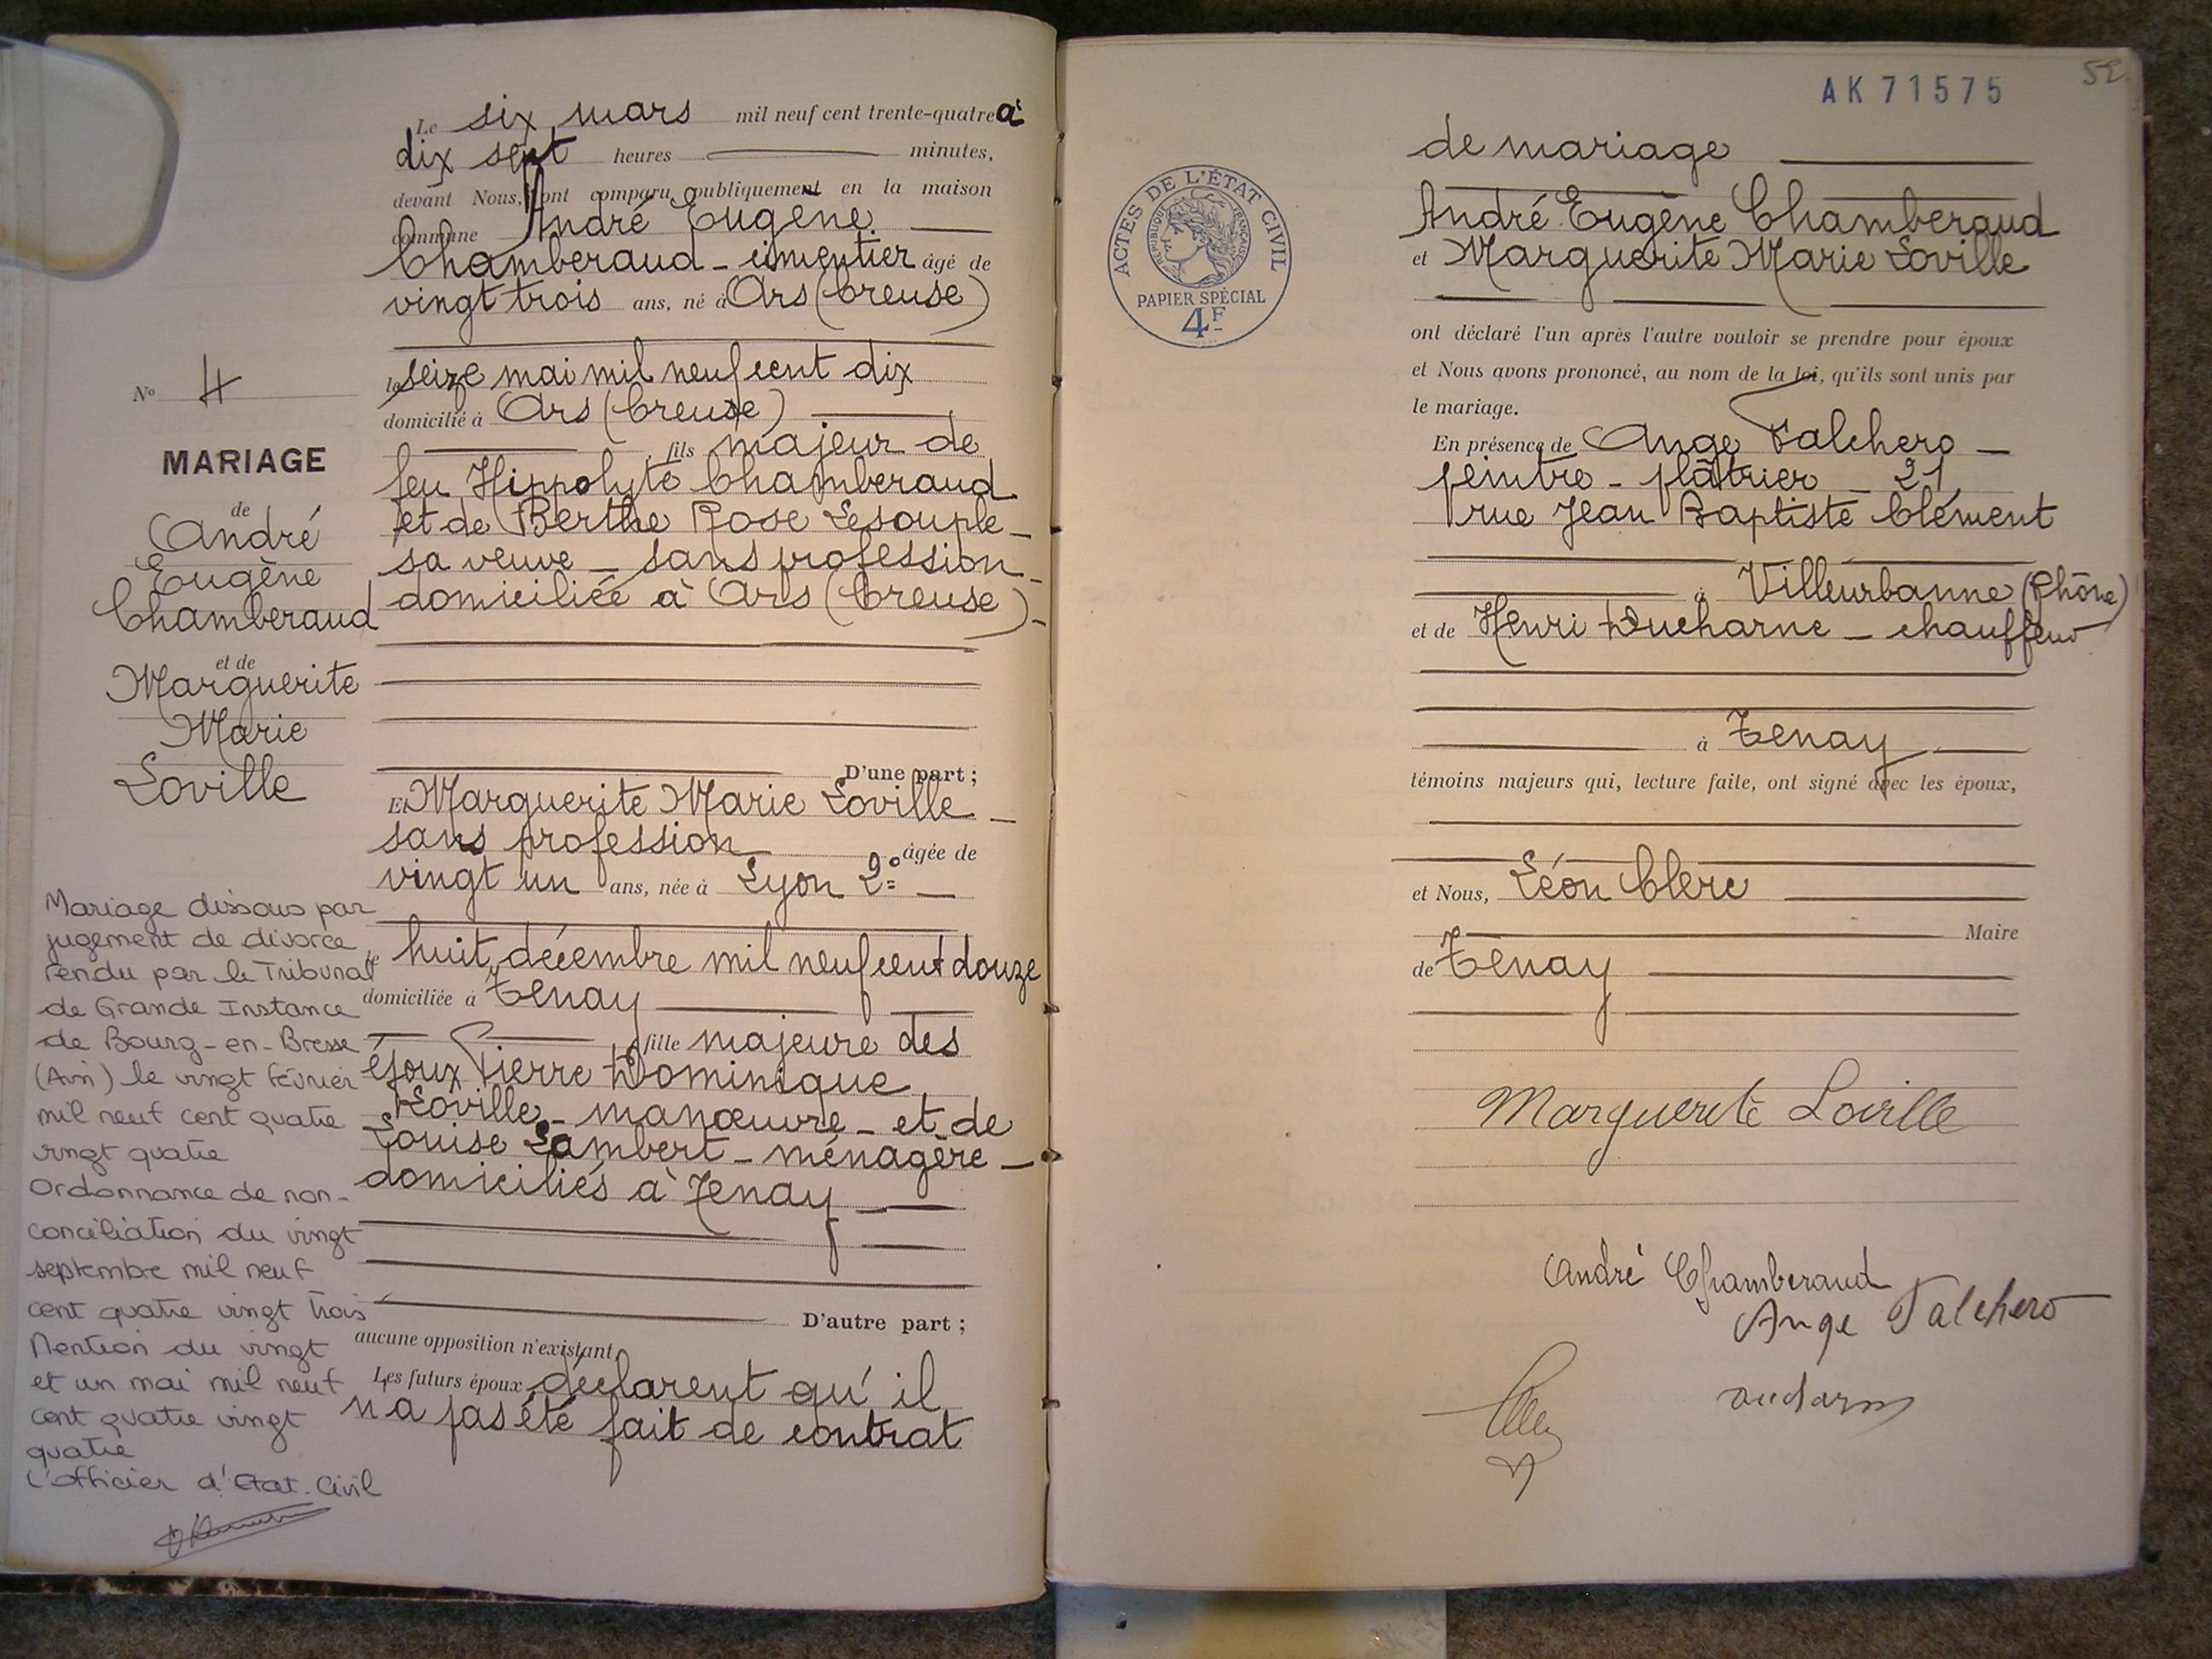 Le six mars mil neuf cent trente-quatre à
dix sept heures minutes,
devant Nous, ont comparu publiquement en la maison
commune André Eugène
Chamberaud - cimentier âgé de
vingt trois ans, né à Ars (Creuse)
le seize mai mil neuf cent dix
domicilié à Ars (Creuse)
fils majeur de
feu Hippolyte Chamberaud
et de Berthe Rose Lesouple -
sa veuve - sans profession -
domiciliée à Ars (Creuse) -
D'une part ;
Et Marguerite Marie Loville -
sans profession âgée de
vingt un ans, née à Lyon 2°
le huit décembre mil neuf cent douze
domiciliée à Tenay
fille majeure des
époux Pierre Dominique
Loville - manœuvre - et de
Louise Lambert - ménagère -
domiciliés à Tenay
D'autre part ;
aucune opposition n'existant,
Les futurs époux déclarent qu'il
n'a pas été fait de contrat
N° 4
MARIAGE
de
André
Eugène
Chamberaud
et de
Marguerite
Marie
Loville
Mariage dissous par
jugement de divorce
rendu par le Tribunal
de Grande Instance
de Bourg-en-Bresse
(Ain) le vingt février
mil neuf cent quatre
vingt quatre
Ordonnance de non-
conciliation du vingt
septembre mil neuf
cent quatre vingt trois
Mention du vingt
et un mai mil neuf
cent quatre vingt
quatre
L'officier d'Etat-Civil
AK 71575
52
ACTES DE L'ÉTAT CIVIL
RÉPUBLIQUE FRANÇAISE
PAPIER SPÉCIAL
4F
de mariage
André Eugène Chamberaud
et Marguerite Marie Loville
ont déclaré l'un après l'autre vouloir se prendre pour époux
et Nous avons prononcé, au nom de la loi, qu'ils sont unis par
le mariage.
En présence de Ange Falchero -
peintre - plâtrier - 21
rue Jean Baptiste Clément
à Villeurbanne (Rhône)
et de Henri Ducharne - chauffeur
à Tenay
témoins majeurs qui, lecture faite, ont signé avec les époux,
et Nous, Léon Clerc
Maire
de Tenay
Marguerite Loville
André Chamberaud
Ange Falchero